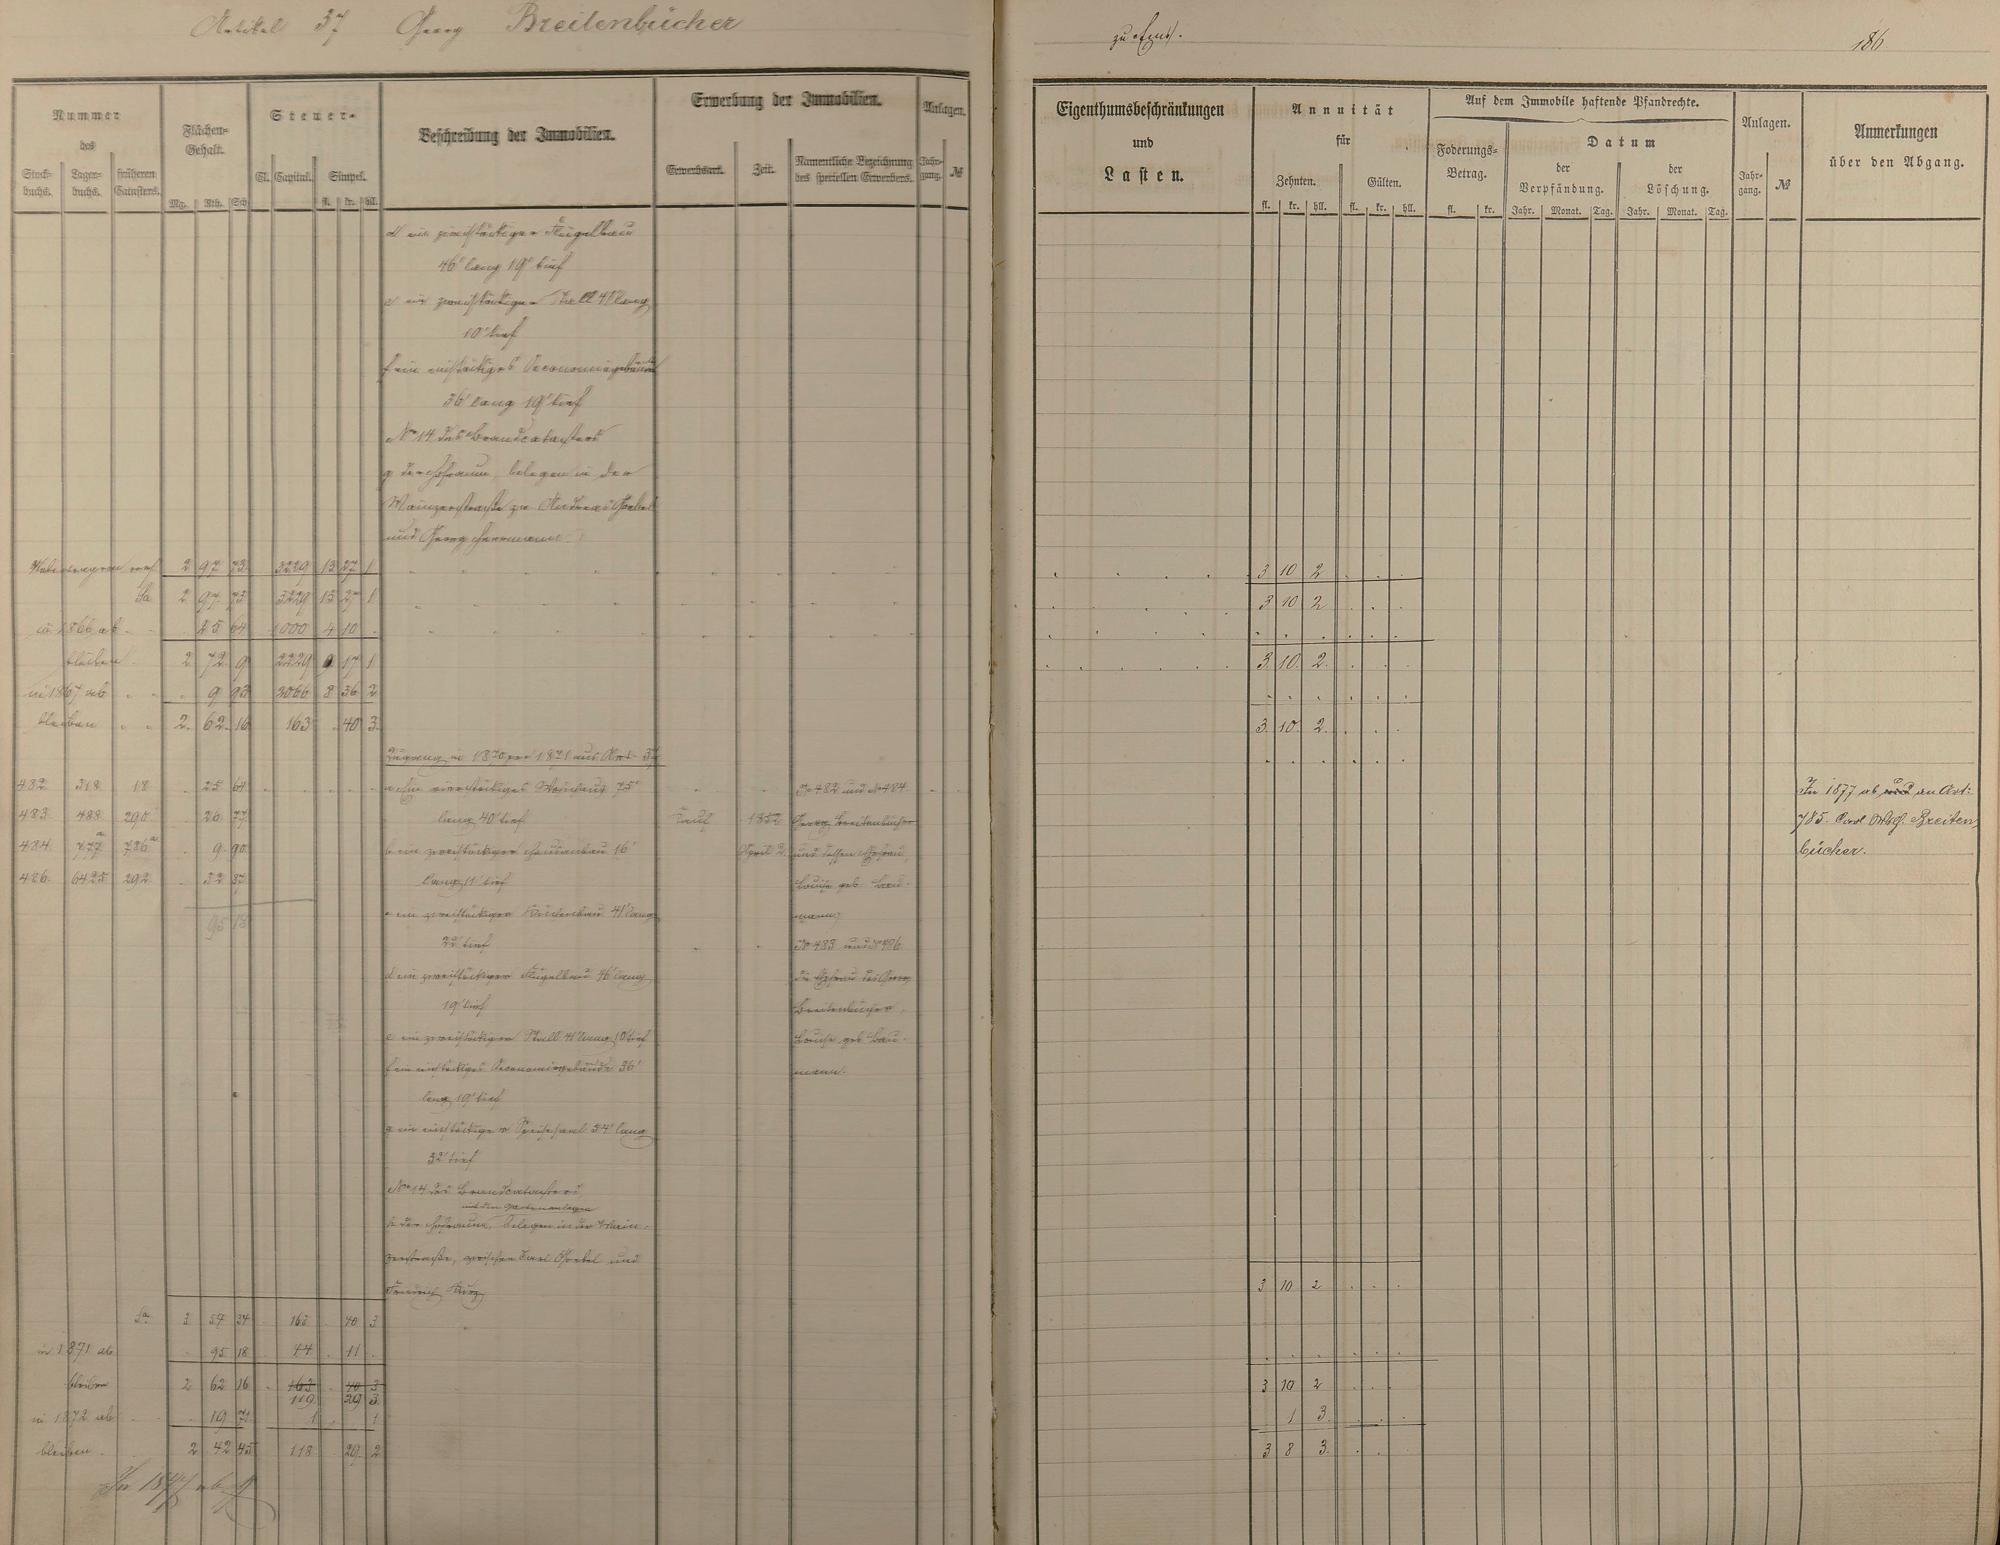 Artikel 37 Georg Breitenbücher
zu Ems.
186
Nummer
des
Stock-
buchs.
Lager-
buchs.
früheren
Catasters.
Flächen-
Gehalt.
Mg. Rth. Sch
Steuer-
Cl. Capital. Simpel.
fl. kr. hll.
Beschreibung der Immobilien.
Erwerbung der Immobilien.
Erwerbsart. Zeit.
Namentliche Bezeichnung
des speciellen Erwerbers.
Anlagen.
Jahr-
gang. №
Eigenthumsbeschränkungen
und
Lasten.
Annuität
für
Zehnten. Gülten.
fl. kr. hll. fl. kr. hll.
Auf dem Immobile haftende Pfandrechte.
Foderungs-
Betrag.
fl. kr.
Datum
der
Verpfändung.
der
Löschung.
Jahr. Monat. Tag. Jahr. Monat. Tag.
Anlagen.
Jahr-
gang. №
Anmerkungen
über den Abgang.
d ein zweistöckiger Flügelbau
46' lang 19' tief
e ein zweistöckiger Stall 41' lang
10' tief
f ein einstöckiges Oeconomiegebäude
36' lang 19' tief
No 14 des Brandcatasters
g der Hofraum, belegen in der
Mainzerstraße zw. Andreas Goebel
und Georg Herrmann
2 97 73 3229 13 27 1 3 10 2
Sa 2 97 73 3229 13 27 1 3 10 2
in 1866 ab 25 64 1000 4 10
bleiben 2 72 9 2229 9 17 1 3 10 2
in 1867 ab 9 93 2066 8 36 2
bleiben 2 62 16 163 40 3 3 10 2
Zugang in 1870 1871 aus Art 37
482 318 18 25 64 a Ein vierstöckiges Wohnhaus 75' No 482 und No 484
483 488 290 26 77 lang 40' tief Kauf 1852 Georg Breitenbücher
484 777 726 9 90 b ein zweistöckiger 16' April 2. und dessen Ehefrau
486 6425 292 32 87 lang 11' tief Louise geb. Bau-
95 18 c ein zweistöckiger 41' lang mann
22' tief No 483 und No 486
d ein zweistöckiger Flügelbau 46' lang die Ehefrau des Georg
19' tief Breitenbücher,
e ein zweistöckiger Stall 41' lang 10' tief Louise geb. Bau-
f ein einstöckiges Oeconomiegebäude 36' mann.
lang 19' tief
g ein einstöckiger Speisesaal 54' lang
32' tief
No 14 des Brandcatasters
mit den Gartenanlagen
h der Hofraum, belegen in der Main-
zerstraße, zwischen Carl Goebel und
Friedrich Kurz
In 1877 ab an Art:
785. Carl Breiten-
bücher.
3 10 2
Sa 3 57 34 163 40 3
in 1871 ab 95 18 44 11
bleiben 2 62 16 163 40 3 3 10 2
119 29 3
in 1872 ab 19 71 1 1 1 3
bleiben 2 42 45 118 29 2 3 8 3
In 1877 ab